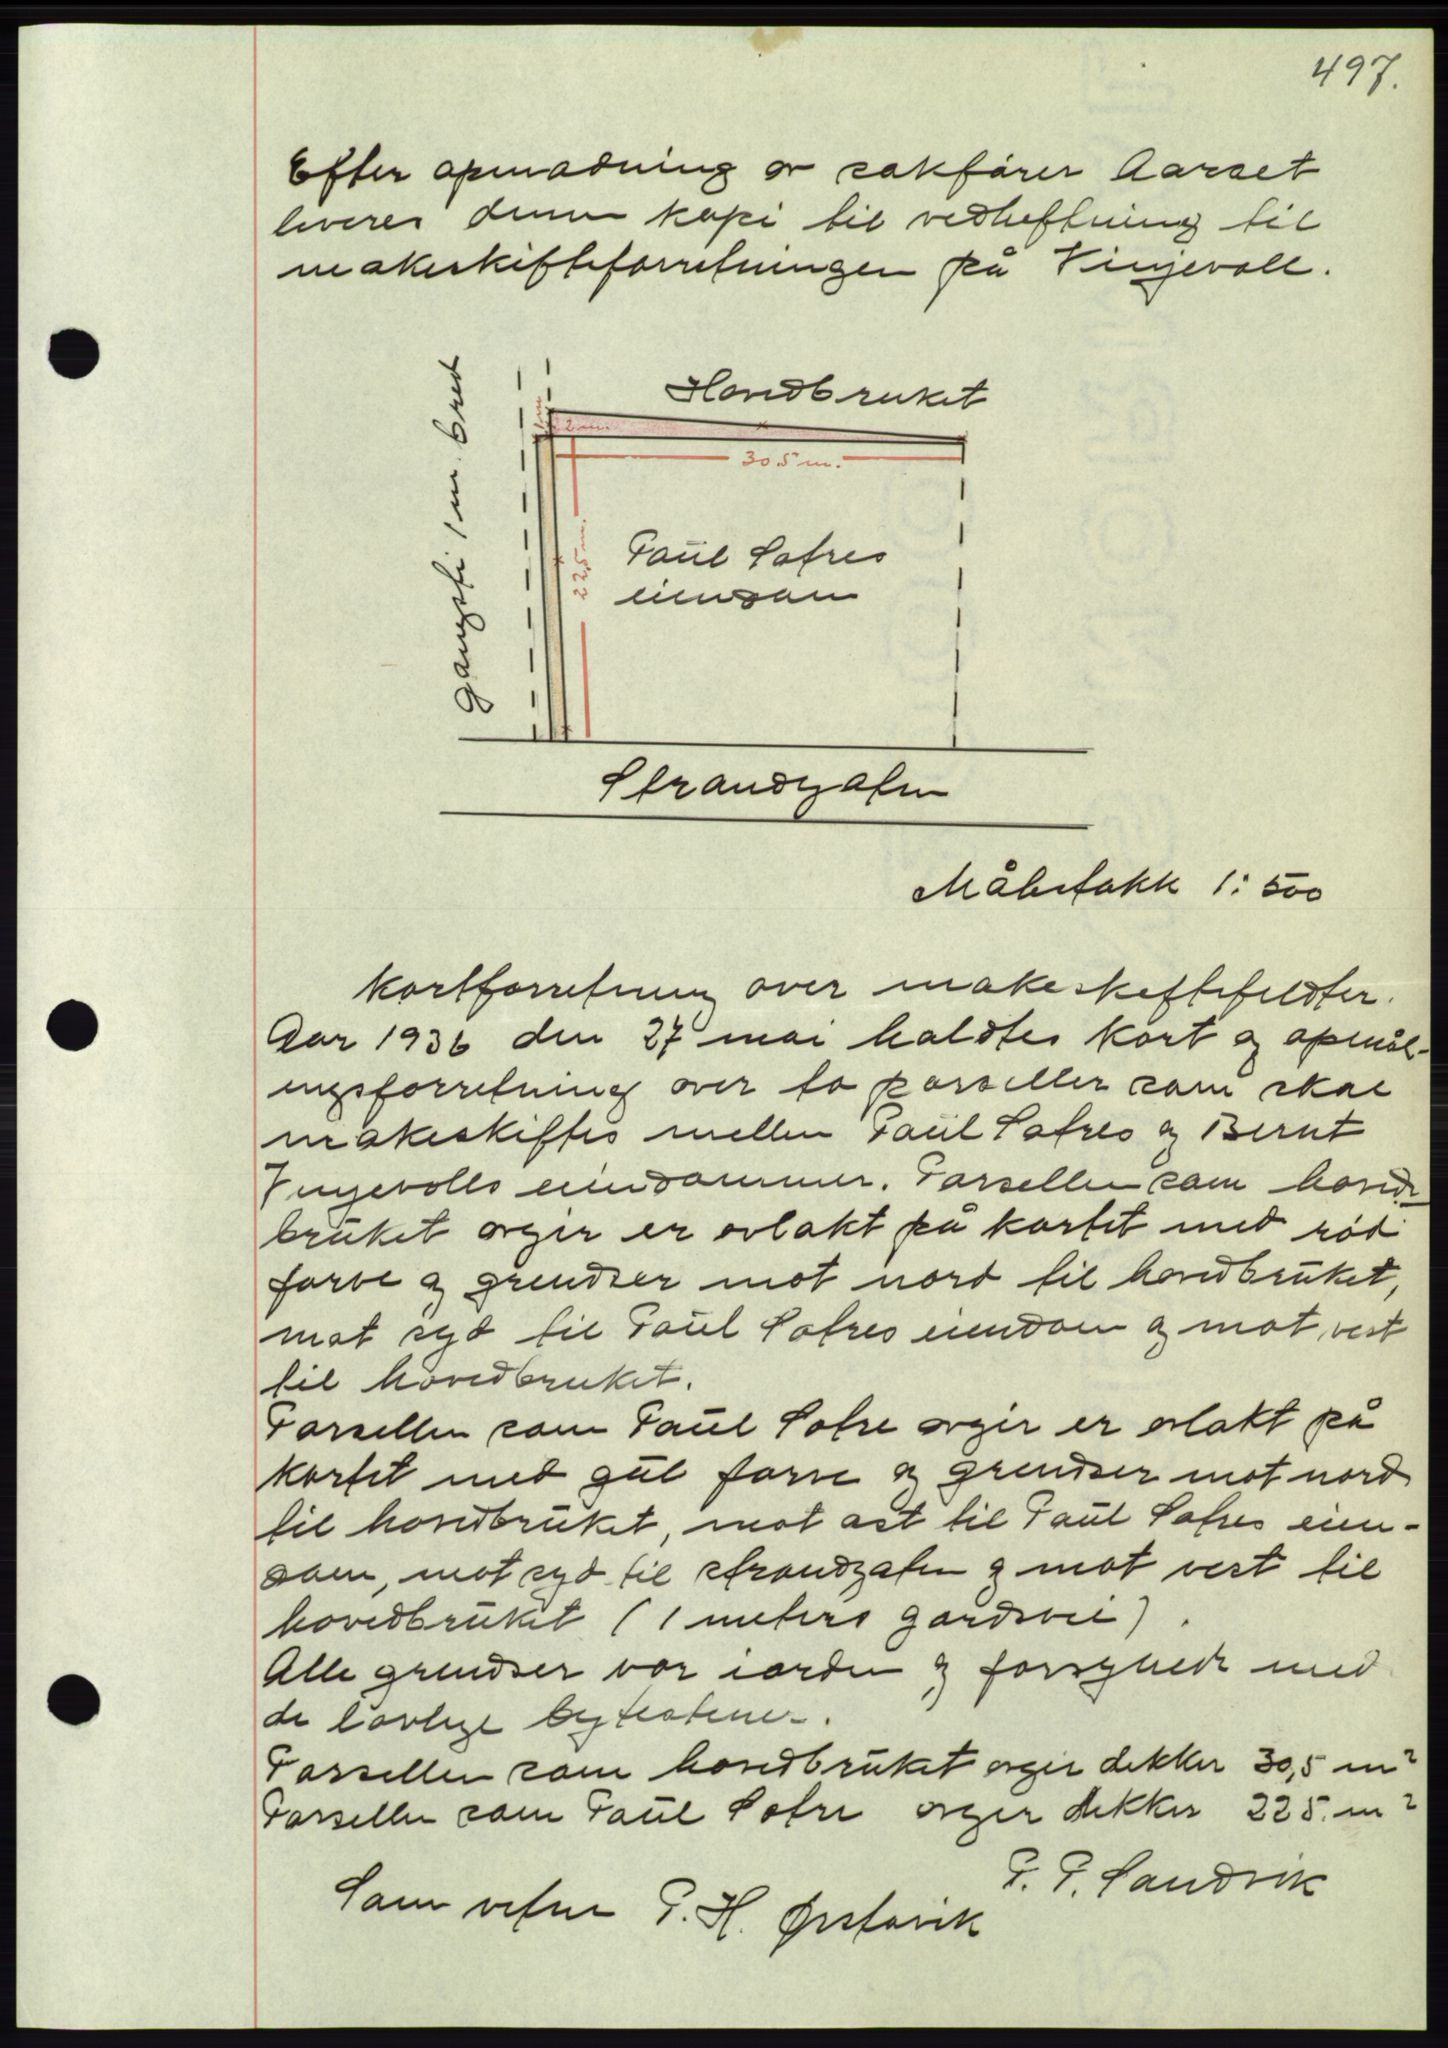 497.
Efter opmodning av sakfører Aarset
leveres denne kopi til vedheftning til
makeskifteforretningen på Vinjevoll.
Hovedbruket
gangsti 1 m. bred
1 m.
2 m.
30.5 m.
22,5 m.
Paul Sætres
eiendom
Strandgaten
Målestokk 1:500
Kartforretning over makeskiftefeldter.
Aar 1936 den 27 mai holdtes kart og opmål-
ingsforretning over to parseller som skal
makeskiftes mellem Paul Sætres og Bernt
Vinjevolls eiendommer. Parsellen som hoved-
bruket avgir er avlakt på kartet med rød
farve og grendser mot nord til hovedbruket,
mot syd til Paul Sætres eiendom og mot vest
til hovedbruket.
Parsellen som Paul Sætre avgir er avlakt på
kartet med gul farve og grendser mot nord
til hovedbruket, mot øst til Paul Sætres eien-
dom, mot syd til strandgaten og mot vest til
hovedbruket (1 meters gårdsvei).
Alle grendser var i orden og forsynede med
de lovlige bytestener.
Parsellen som hovedbruket avgir dekker 30,5 m²
Parsellen som Paul Sætre avgir dekker 22.5. m²
P. P. Sandvik
Som vitne P. H. Ørstavik